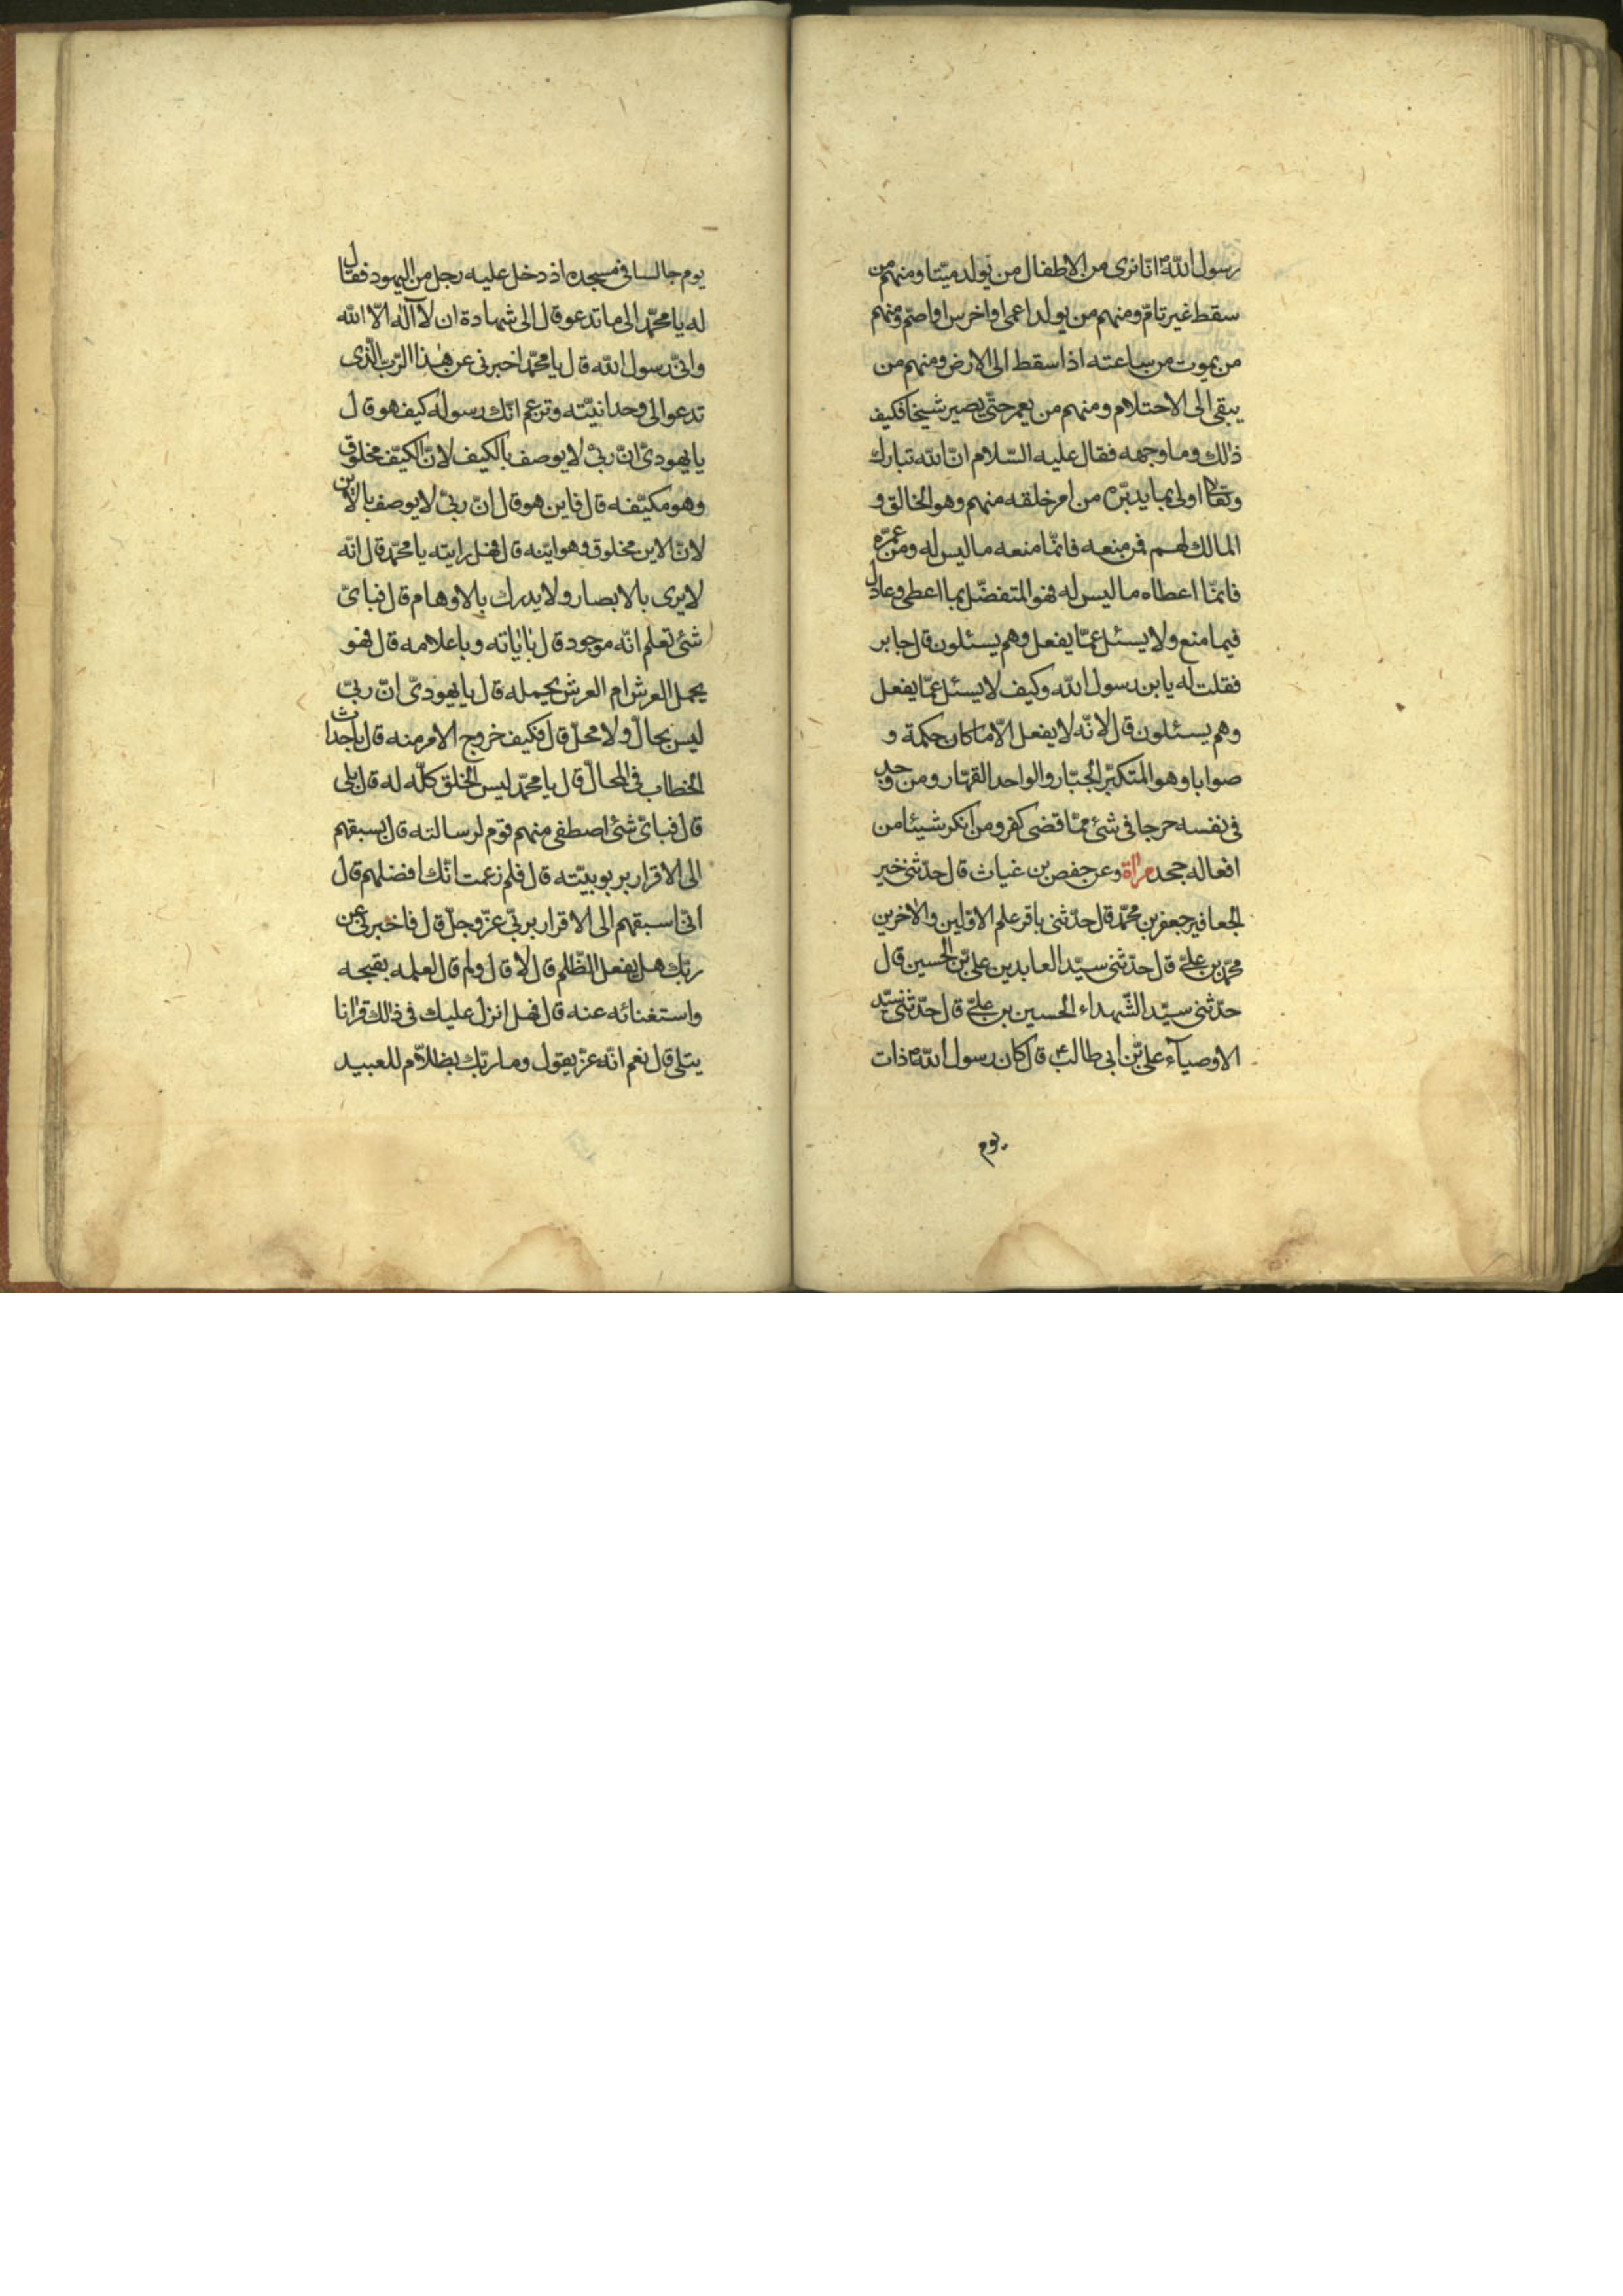 رسول اللّه انّا نرى من الاطفال من يولد ميّتا ومنهم من
سقط غير تامّ ومنهم من يولد اعمى او اخرس او اصمّ ومنهم
من يموت من ساعته اذا سقط الى الارض ومنهم من
يبقى الى الاحتلام ومنهم من يعمر حتّى يصير شيخا فكيف
ذلك وما وجهه فقال عليه السّلام انّ اللّه تبارك
وتعالى اولى بما يدبّره من امر خلقه منهم وهو الخالق و
المالك لهم فمن منعه فانّما منعه ما ليس له ومن عمّره
فانّما اعطاه ما ليس له فهو المتفضّل بما اعطى وعادل
فيما منع ولا يسئل عمّا يفعل وهم يسئلون قال جابر
فقلت له يا بن رسول اللّه وكيف لا يسئل عمّا يفعل
وهم يسئلون قال لانّه لا يفعل الّا ما كان حكمة و
صوابا وهو المتكبّر الجبّار والواحد القهّار ومن وجد
فى نفسه حرجا فى شئ ممّا قضى كفر ومن انكر شيئا من
افعاله جحد مرآة وعن حفص بن غياث قال حدّثنى خير
الجعافير جعفر بن محمّد قال حدّثنى باقر علم الاوّلين والآخرين
محمّد بن علىّ قال حدّثنى سيّد العابدين علىّ بن الحسين قال
حدّثنى سيّد الشّهداء الحسين بن علىّ قال حدّثنى سيّد
الاوصيآء علىّ بن ابى طالب ع قال كان رسول اللّه ذات
يوم
يوم جالسا فى مسجده اذ دخل عليه رجل من اليهود فقال
له يا محمّد الى ما تدعو قال الى شهادة ان لا آله الّا اللّه
وانّى رسول اللّه قال يا محمّد اخبرنى عن هذا الرّبّ الّذى
تدعو الى وحدانيّته وتزعم انّك رسوله كيف هو قال
يا يهودىّ انّ ربّى لا يوصف بالكيف لانّ الكيّف مخلوق
وهو مكيّفه قال فاين هو قال انّ ربّى لا يوصف بالاين
لانّ الاين مخلوق وهو ايّنه قال فهل رايته يا محمّد قال انّه
لا يرى بالابصار ولا يدرك بالاوهام قال فباىّ
شئ تعلم انّه موجود قال بآياته وباعلامه قال فهو
يحمل العرش ام العرش يحمله قال يا يهودىّ انّ ربّى
ليس بحالّ ولا محلّ قال فكيف خروج الامر منه قال باحداث
الخطاب فى المحالّ قال يا محمّد ليس الخلق كلّه له قال بلى
قال فباىّ شئ اصطفى منهم قوم لرسالته قال بسبقهم
الى الاقرار بربوبيّته قال فلم زعمت انّك افضلهم قال
انّى اسبقهم الى الاقرار بربّى عزّ وجلّ قال فاخبرنى عن
ربّك هل يفعل الظّلم قال لا قال ولم قال لعلمه بقبحه
واستغنائه عنه قال فهل انزل عليك فى ذلك قرآنا
يتلى قال نعم انّه عزّ يقول وما ربّك بظلاّم للعبيد